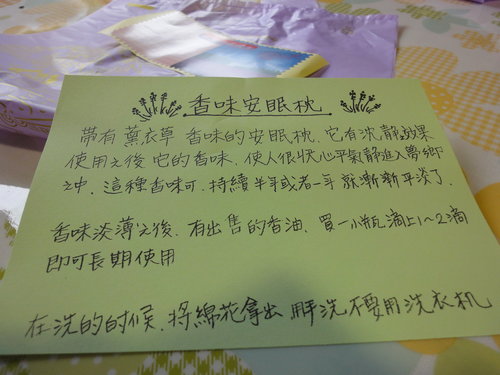 香味安眠枕
帶有薰衣草 香味的安眠枕. 它有沈靜效果
使用之後 它的香味. 使人很快心平氣靜進入夢鄉
之中. 這種香味可. 持續半年或者一年 就漸漸平淡了.
香味淡薄以後. 有出售的香油. 買一小瓶滴上1~2滴
即可長期使用
在洗的时候. 將綿花拿出 用手洗 不要用洗衣机